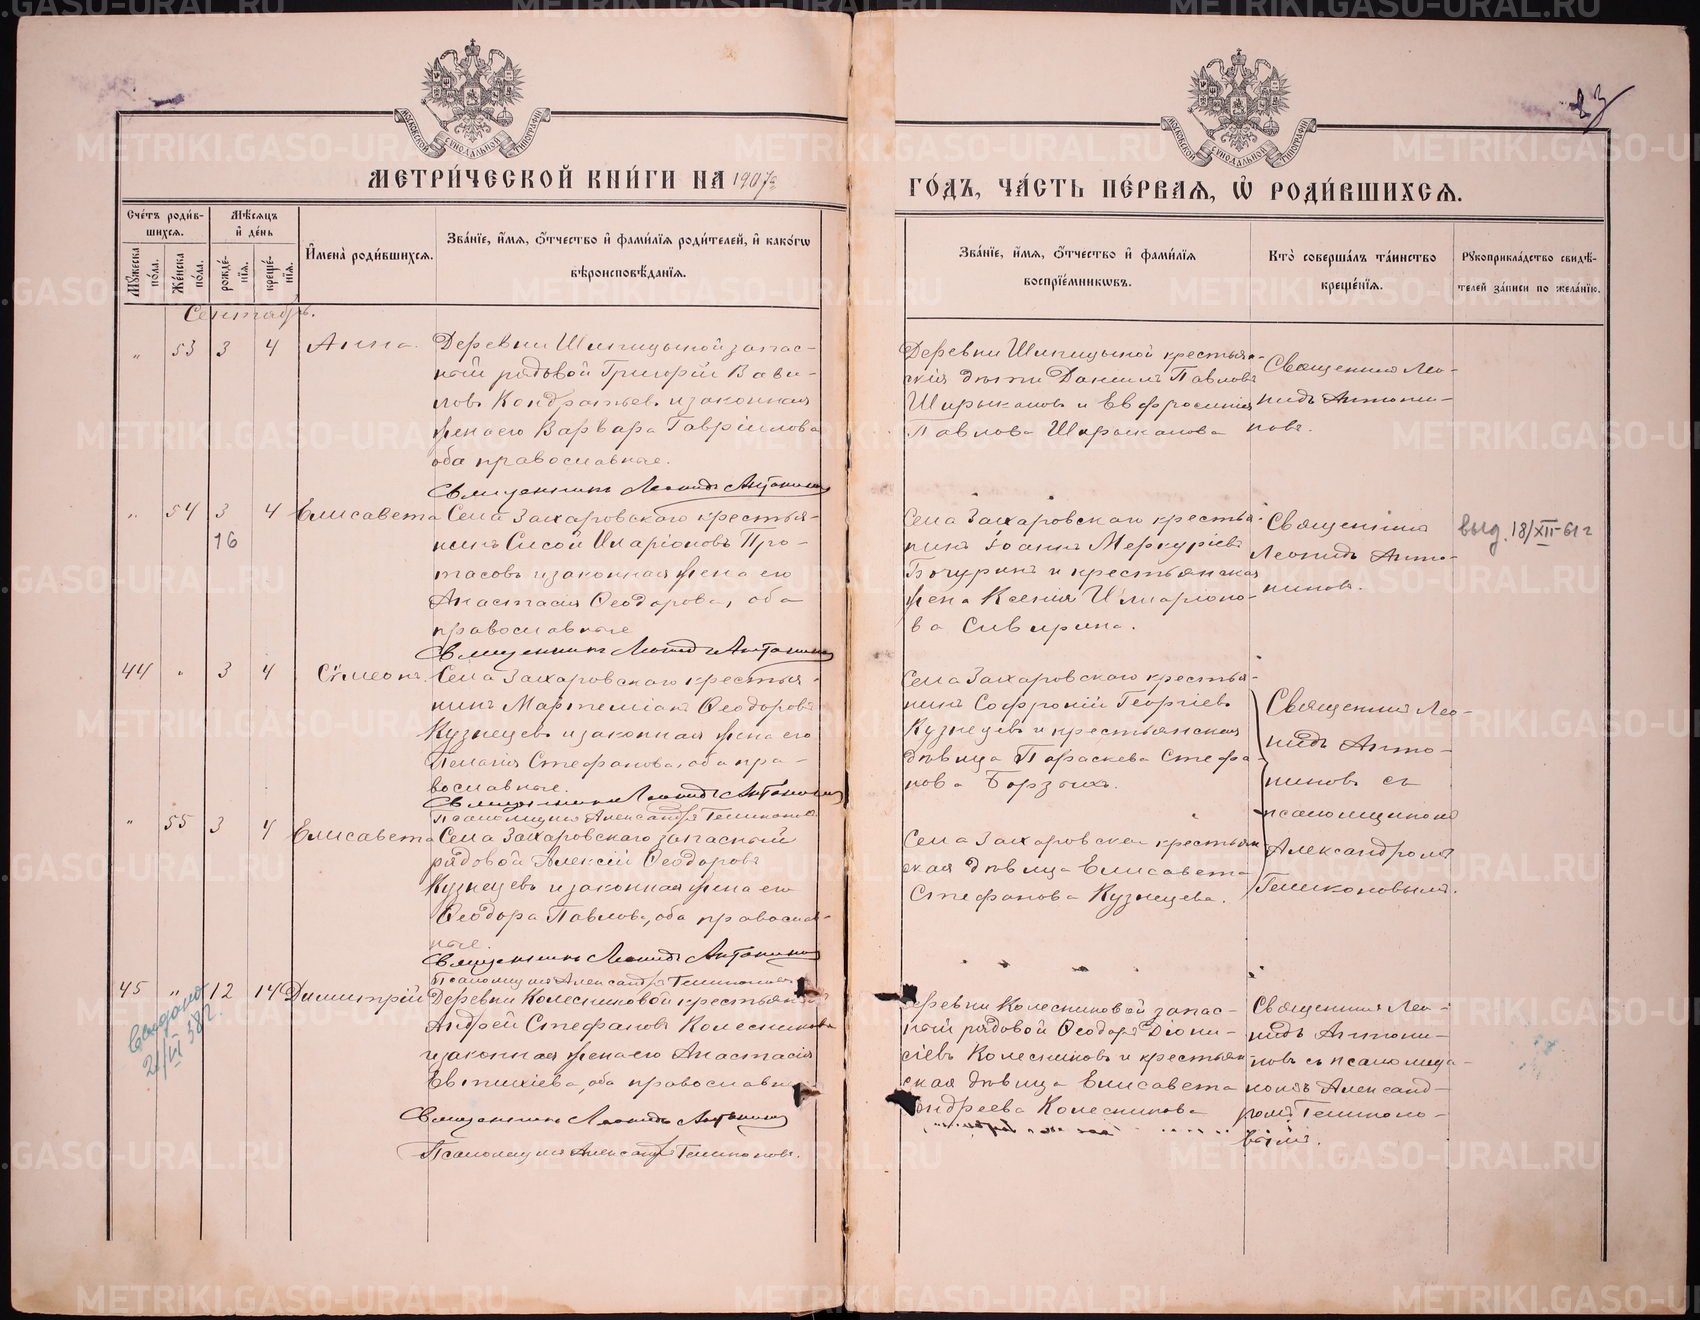 МЕТРИ́ЧЕСКОЙ КНИ́ГИ НА 1907
ГО́ДЪ, ЧА́СТЬ ПЕ́РВАЯ, Ѡ РОДИ́ВШИХСЯ.
Сче́тъ роди́в-
шихся.
Мѣ́сяцъ
и҆ де́нь
Му́жеска
по́ла.
Же́нска
по́ла.
рожде́-
нїя.
креще́-
нїя.
И҆мена̀ роди́вшихся.
Зва́нїе, и҆́мя, ѻ҆́тчество и҆ фами́лїя роди́телей, и҆ како́гѡ
вѣроисповѣ́данїя.
Зва́нїе, и҆́мя, ѻ҆́тчество и҆ фами́лїя
воспрїе́мниковъ.
Кто̀ соверша́лъ та́инство
креще́нїя.
Рукоприкла́дство свидѣ́-
телей за́писи по жела́нїю.
Сентябрь.
„ 53 3 4 Анна.
Деревни Шипицыной запас-
ный рядовой Григорій Вави-
ловъ Кондратьевъ и законная
жена его Варвара Гавріилова
оба православные.
Священникъ Леонидъ Антониновъ
Деревни Шипицыной крестьян-
скія дѣти Даніилъ Павловъ
Ширыкаловъ и Евфросинія
Павлова Ширыкалова
Священникъ Лео-
нидъ Антони-
новъ.
„ 54 3 4 Елисавета
16
Села Захаровскаго крестья-
нинъ Сисой Иларіоновъ Про-
тасовъ и законная жена его
Анастасія Ѳеодорова, оба
православные
Священникъ Леонидъ Антониновъ
Села Захаровскаго крестья-
нинъ Іоаннъ Меркуріевъ
Бачуринъ и крестьянская
жена Ксенія Иларіоно-
ва Сивирина.
Священникъ
Леонидъ Анто-
ниновъ.
выд. 18/XII-61 г
44 „ 3 4 Сѵмеонъ.
Села Захаровскаго крестья-
нинъ Мартеміанъ Ѳеодоровъ
Кузнецевъ и законная жена его
Пелагія Стефанова, оба пра-
вославные.
Священникъ Леонидъ Антониновъ
Псаломщикъ Александръ Гетмановъ
Села Захаровскаго крестья-
нинъ Софроній Георгіевъ
Кузнецевъ и крестьянская
дѣвица Параскева Стефа-
нова Борзыхъ.
Священникъ Лео-
нидъ Анто-
ниновъ съ
псаломщикомъ
Александромъ
„ 55 3 4 Елисавета
Села Захаровскаго запасный
рядовой Алексій Ѳеодоровъ
Кузнецевъ и законная жена его
Ѳеодора Павлова, оба православ-
ные.
Священникъ Леонидъ Антониновъ
Села Захаровскаго крестьян-
ская дѣвица Елисавета
Стефанова Кузнецева.
45 „ 12 14 Димитрій
Выдано
21/VI 38 г.
Деревни Колесниковой крестьянинъ
Андрей Стефановъ Колесниковъ
и законная жена его Анастасія
Евтихіева, оба православные
Священникъ Леонидъ Антониновъ
Деревни Колесниковой запас-
ный рядовой Ѳеодоръ Діони-
сіевъ Колесниковъ и крестьян-
ская дѣвица Елисавета
Андреева Колесникова
Священникъ Лео-
нидъ Антони-
новъ съ псаломщи-
комъ Александ-
ромъ
METRIKI.GASO-URAL.RU